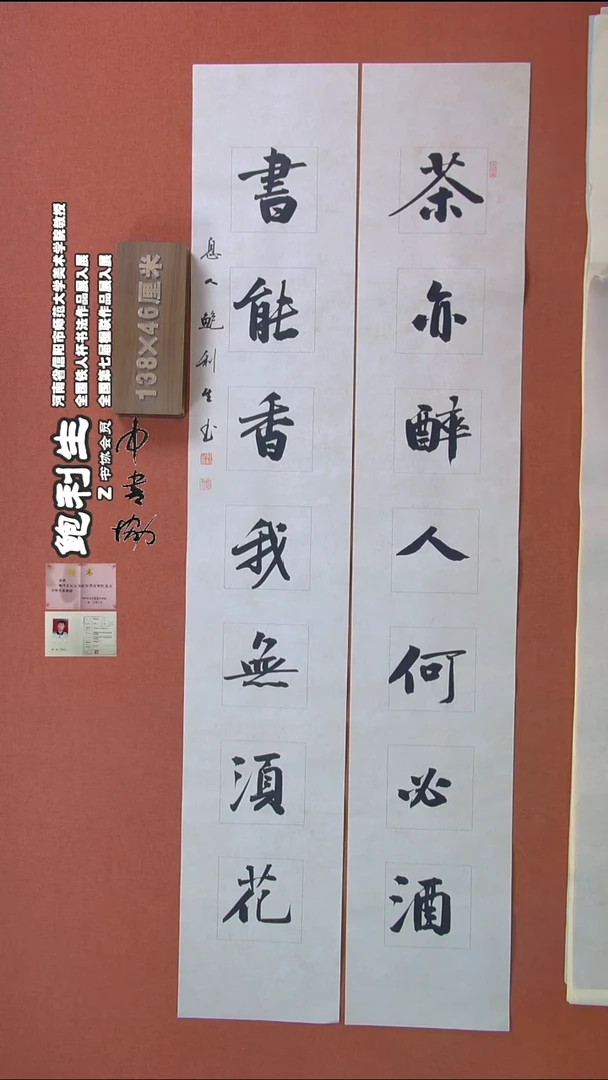 茶亦醉人何必酒
書能香我無須花
息人鮑利生书
138×46厘米
河南省信阳市师范大学美术学院教授
全国铁人杯书法作品展入展
全国第七届楹联作品展入展
鲍利生
书协会员
中书协